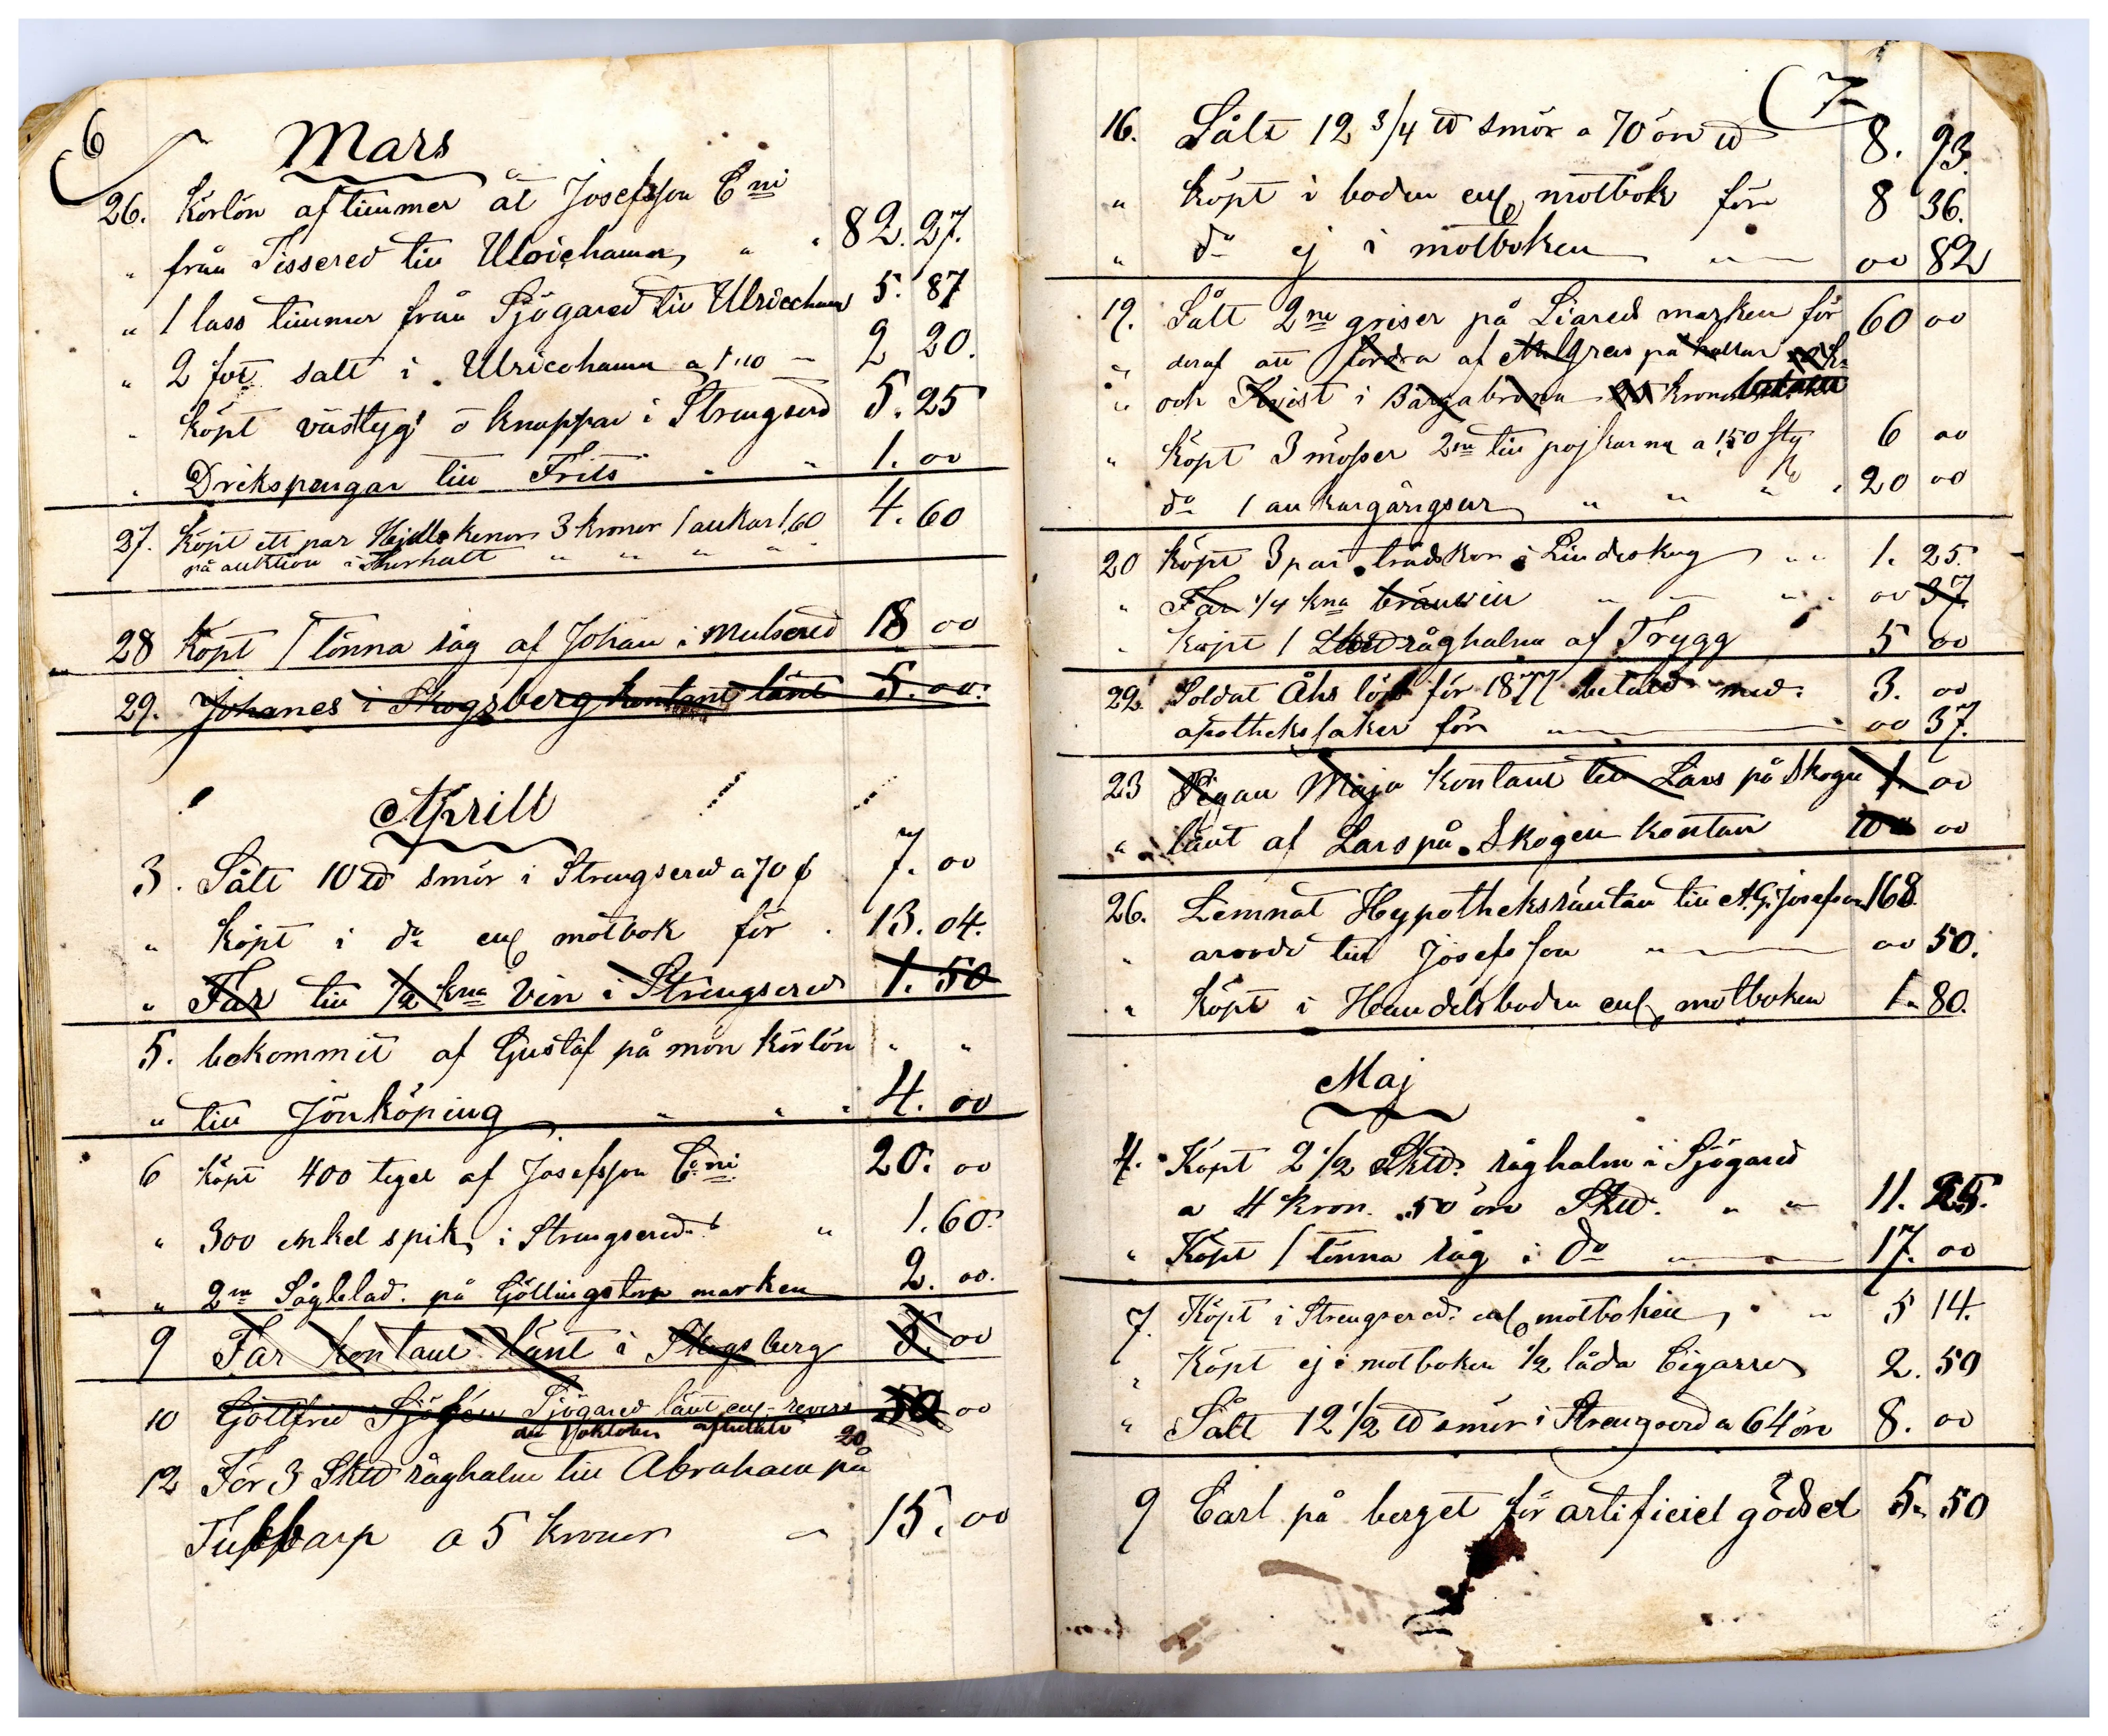 6
Mars
26. Körlön af timmer åt Josefsson C ni
" från Tissered till Ulricehamn " " 82. 27.
" 1 lass timmer från Sjögared till Ulricehamn 5. 87
" 2 fot salt i Ulricehamn a 1"10 — 2 20.
" Köpt västtyg o knappar i Strengsered 5. 25
" Drikspengar till Frits " " 1. 00
27. Köpt ett par kenor 3 kronor 1 ankar 1,60 4. 60
på auktion i " " " "
28 Köpt 1 tönna råg af Johan i Mulsered 18 00
29. Johanes i Skogsberg kontant lånt 5. 00.
Aprill
3. Sålt 10 ℔ smör i Strengsered a 70 ö 7. 00
" Köpt i do enl motbok för . 13. 04.
" Far till 1/2 kna Vin i Strengsered 1. 50
5. bekommit af Gustaf på mon körlön " "
" till Jönköping " " " 4. 00
6 Köpt 400 tegel af Josefsson C ni 20. 00
" 300 enkel spik i Strengsered " 1. 60.
" 2ne Sågblad på Göllingstorp marken 2. 00.
9 Far kontant lånt i Skogsberg 5. 00
10 Gottfred Sjögren Sjögared lånt enl revers 50 00
20
12 För 3 Sk℔ råghalm till Abraham på
a 5 kronor — 15. 00
7
16. Sålt 12 3/4 ℔ smör a 70 öre ℔ 8. 93.
" Köpt i boden enl motbok för 8 36.
" do ej i motboken " 00 82
19. Sålt 2ne griser på Liareds marken för 60 00
" deraf att fordra af på
" och Kvist i kronor betalt
" Köpt 3 mösser 2ne till pojkarna a 1,50 sty 6 00
do 1 ankargångsur " " " " 20 00
20 Köpt 3 par trädskor i Lindeskog " " 1. 25.
" Far 1/4 kna bränvin " " " 00 37
" Köpt 1 råghalm af Trygg 5 00
22. Soldat Åhs lön för 1877 betald med. 3. 00
apotheksaker för " 00 37.
23 Pigan Maja kontant till Lars på Skogen 1. 00
" lånt af Lars på Skogen kontan 10 00
26. Lemnat Hypotheksräntan till A.G. Josefson 168
" arvode till Josefsson " 00 50.
" Köpt i Handelsboden enl motboken 1 80.
Maj
4. Köpt 2 1/2 Sk℔. råghalm i Sjögared
a 4 kron. 50 öre Sk℔. " " 11. 25.
" Köpt 1 tönna råg i do " 17. 00
7. Köpt i Strengsered enl motboken " 5 14.
" Köpt ej i motboken 1/2 låda Cigarrer 2. 50
" Sålt 12 1/2 ℔ smör i Strengsered a 64 öre 8. 00
9 Carl på berget för artificiel gödsel 5. 50